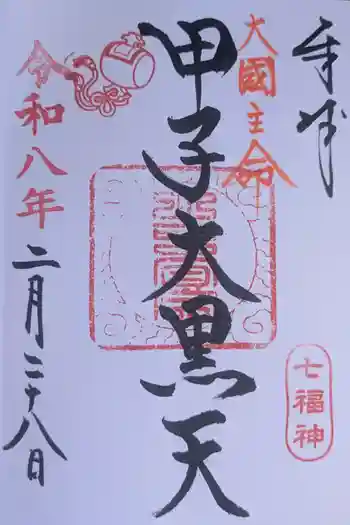 奉拝
大國主命
甲子大黒天
七福神
令和八年
二月二十八日